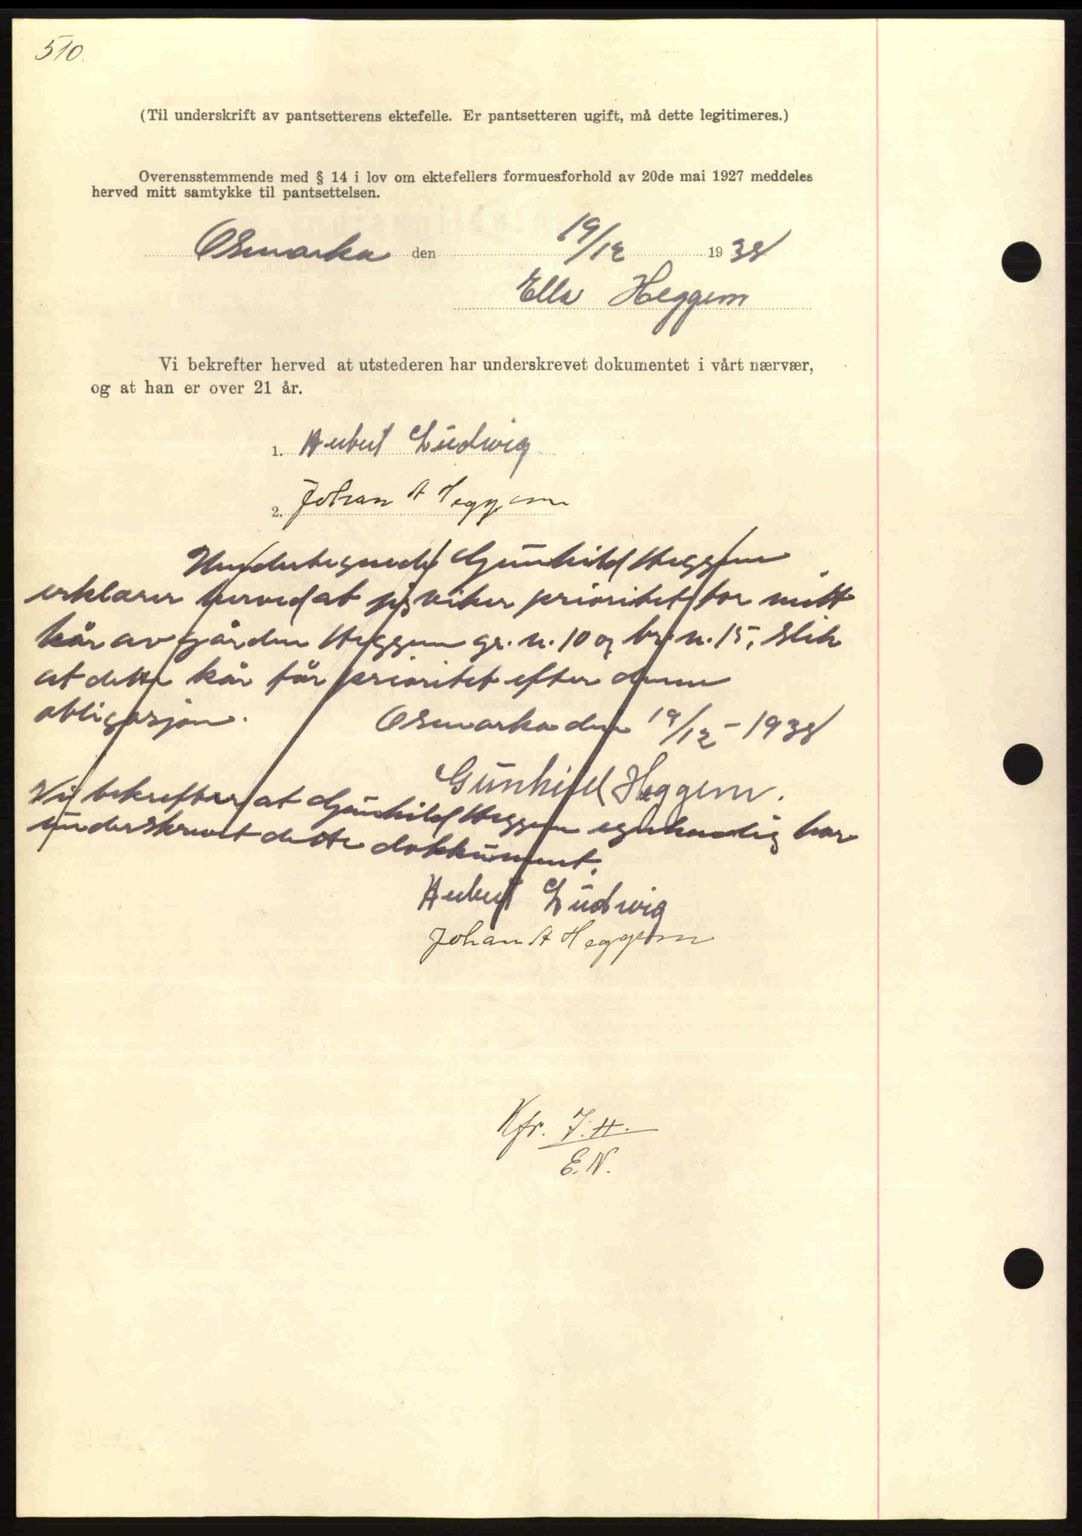 510.
(Til underskrift av pantsetterens ektefelle. Er pantsetteren ugift, må dette legitimeres.)
Overensstemmende med § 14 i lov om ektefellers formuesforhold av 20de mai 1927 meddeles
herved mitt samtykke til pantsettelsen.
Osmarka den 19/12 1938
Ella Heggem
Vi bekrefter herved at utstederen har underskrevet dokumentet i vårt nærvær,
og at han er over 21 år.
1. Hubert Ludwig
2. Johan A Heggem
Undertegnede Gunhild Heggem
erklærer herved at jeg viker prioritet for mitt
kår av gården Heggem gr. n. 10 og br. n. 15, slik
at dette kår får prioritet efter denne
obligasjon. Osmarka den 19/12 - 1938
Gunhild Heggem.
Vi bekrefter at Gunhild Heggem egenhendig har
underskrevet dette dokkument.
Hubert Ludwig
Johan A Heggem
Kfr. J.H.
E.N.